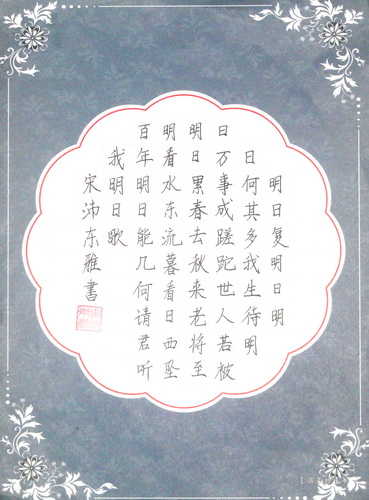 明日复明日明
日何其多我生待明
日万事成蹉跎世人若被
明日累春去秋来老将至
明看水东流暮看日西坠
百年明日能几何请君听
我明日歌
宋沛东雅書